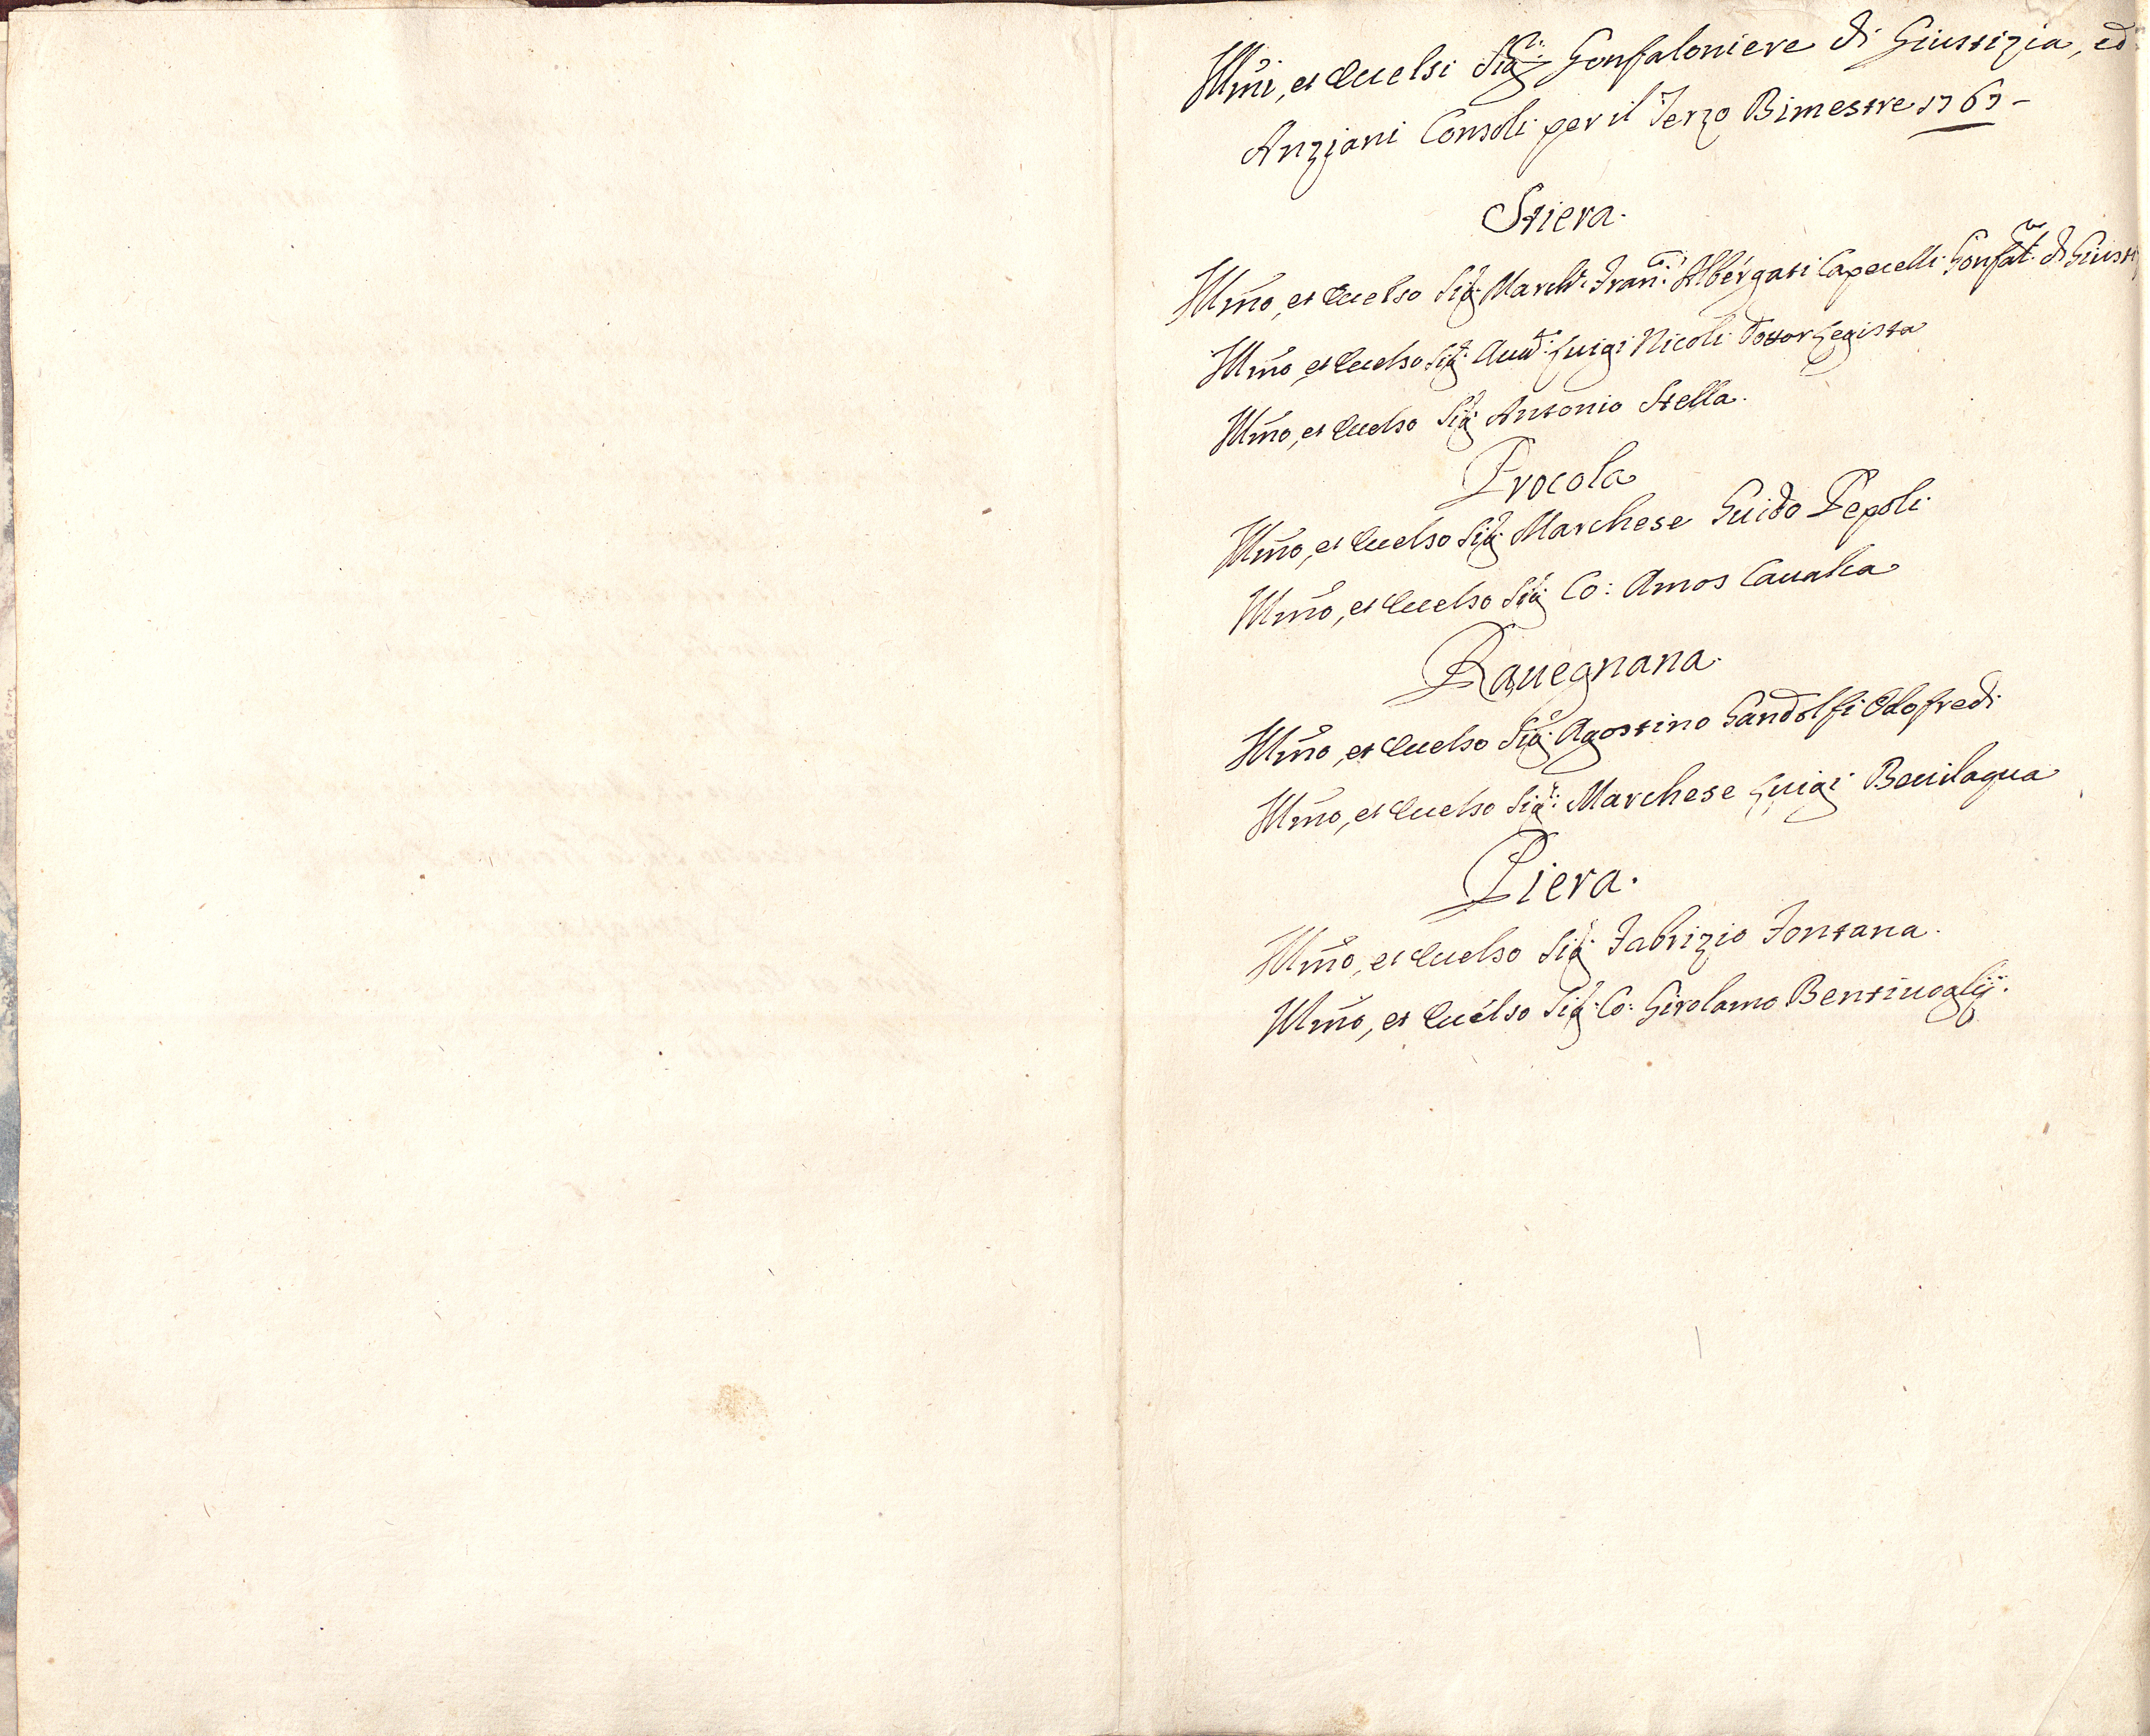 Illm̃i, et Eccelsi Sig.ri Gonfaloniere di Giustizia, ed
Anziani Consoli per il Terzo Bimestre 1767 -
Stiera.
Illm̃o, et Eccelso Sig.r March.e Fran.co Albergati Capacelli Gonfal.re di Giust
Illm̃o, et Eccelso Sig.r Luigi Nicoli Dottor Legista
Illm̃o, et Eccelso Sig.r Antonio Stella.
Procola
Illm̃o, et Eccelso Sig.r Marchese Guido Pepoli
Illm̃o, et Eccelso Sig.r Co: Amos Caualca
Rauegnana.
Illm̃o, et Eccelso Sig.r Agostino Gandolfi Odofredi
Illm̃o, et Eccelso Sig.r Marchese Luigi Beuilaqua
Piera.
Illm̃o, et Eccelso Sig.r Fabrizio Fontana.
Illm̃o, et Eccelso Sig.r Co: Girolamo Bentiuoglij.